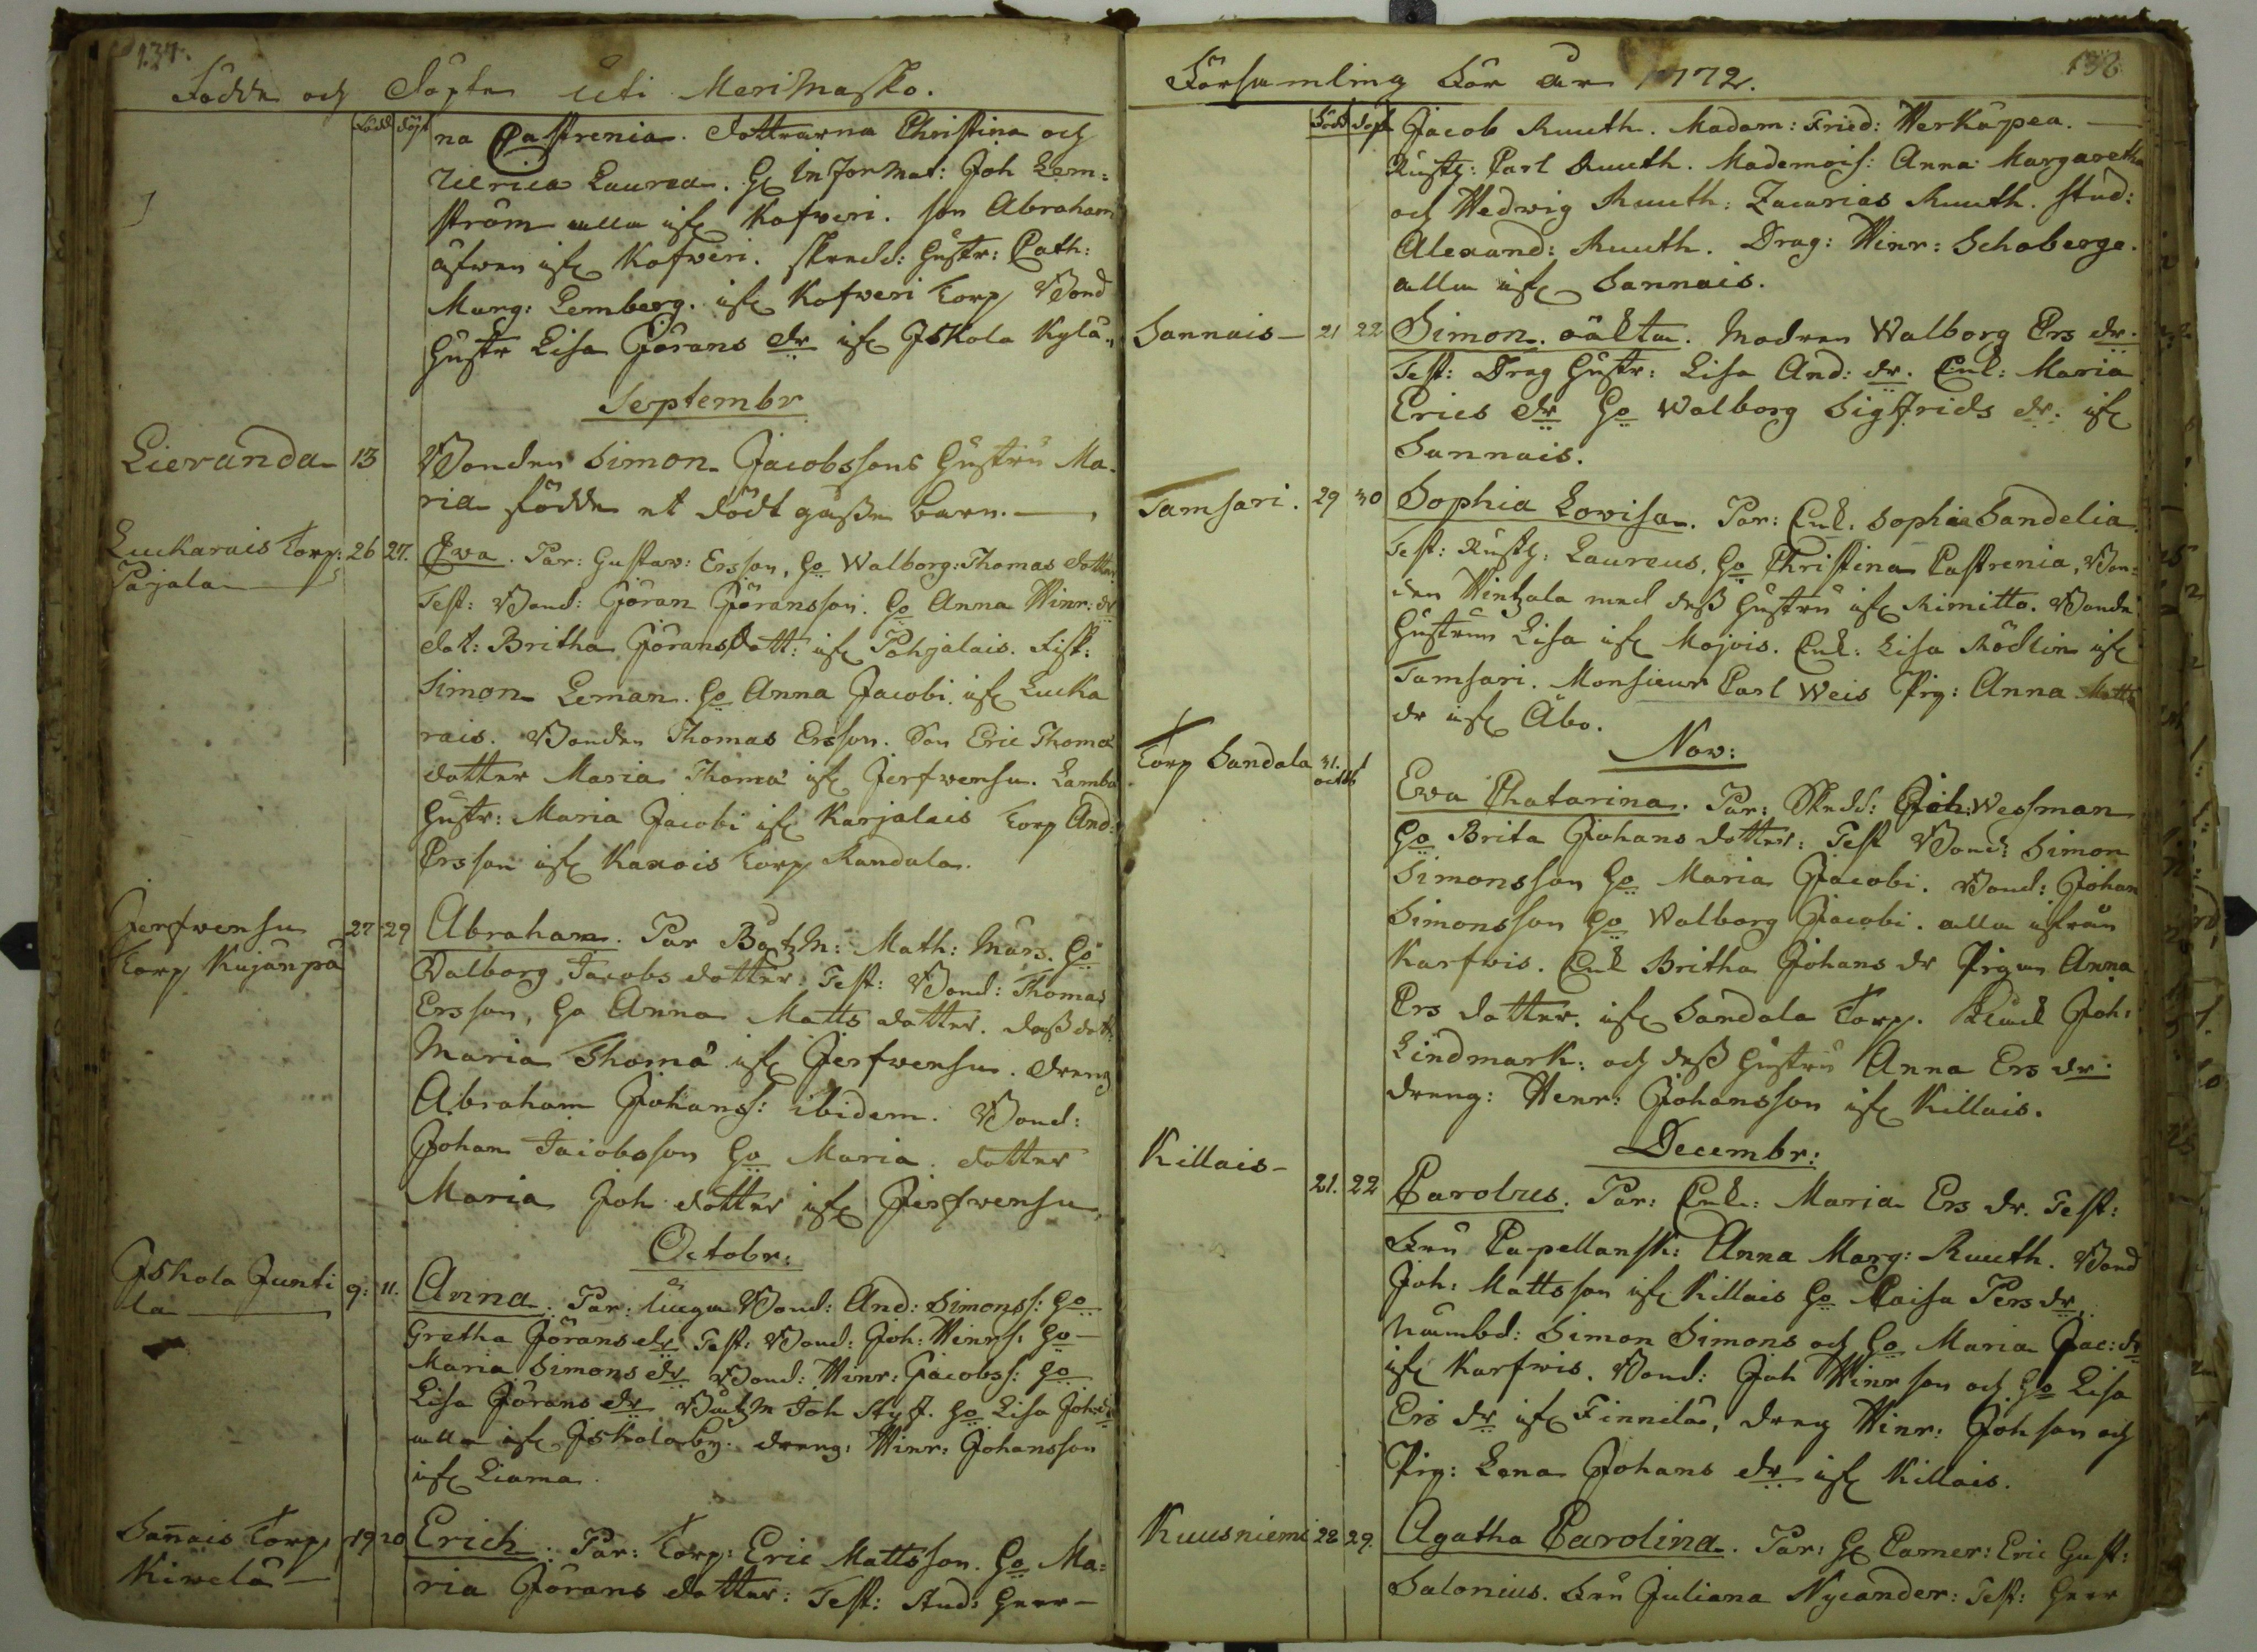 137.
Födde och Döpte uti Merimasko.
Född Döpt
na Castrenia. Dottrarna Christina och
Ulrica Laurea. H Informat: Joh Lem=
ström alla ifr Kofweri. son Abraham
äfwen ifr Kofweri. Skredd: Hustr: Cath:
Marg: Lemberg. ifr Kofweri Torp Bond
Hustr Lisa Görans dr ifr Iskola Kylä.
Septembr
Lieranda 13
Bonden Simon Jacobssons Hustru Ma=
ria födde et dödt gåsse barn.
Luckarais Torp: 26 27.
Parjala
Ewa. Par: Gustav: Ersson, Ho Walborg: Thomas dotter
Test: Bond: Göran Göransson. Ho Anna Hinr: dr
dot: Britha Görans dott: ifr Pohjalais. Fisk:
Simon Leman. Ho Anna Jacobi ifr Lucka
rais. Bonden Thomas Ersson. Son Eric Thomæ
dotter Maria Thomæ ifr Jerfwensu. Lamba
Hustr: Maria Jacobi ifr Karjalais Torp And:
Ersson ifr Kaxois Torp Randala.
Jerfwensu 27 29
Torp Kujanpä
Abraham. Par Båtzm: Math: Murs. Ho
Walborg Jacobs dotter: Test: Bond: Thomas
Ersson, Ho Anna Matts dotter. dess dott:
Maria Thomæ ifr Jerfwensu. dreng
Abraham Johanss: ibidem. Bond:
Johan Jacobsson Ho Maria. dotter
Maria Joh dotter ifr Jerfwensu.
Octobr:
Iskola Junti 9: 11.
la
Anna. Par: unga Bond: And: Simonss: Ho
Gretha Görans dr Test: Bond: Joh: Hinrs: Ho
Maria Simons dr Bond: Hinr: Jacobss: Ho
Lisa Görans dr Båtzm Joh Styf. Ho Lisa Joh: dr
alla ifr Iskolaby. dreng: Hinr: Johansson
ifr Liama.
Sannais Torp 19 20
Kiwelä
Erich. Par: Torp: Eric Mattsson. Ho Ma=
ria Görans dotter: Test: Stud: Herr
138
Församling för år 1772.
Född Döpt
Jacob Ruuth. Madam: Fried: Werkäpea.
Rustf: Carl Ruuth. Mademois: Anna Margaretha
och Hedwig Ruuth: Zacarias Ruuth. Stud:
Alexand: Ruuth. Drag: Hinr: Schoberge.
alla ifr Sannais.
Sannais 21 22
Simon. oäkta. Modren Walborg Ers dr.
Test: Drag Hustr: Lisa And: dr. Enk: Maria
Erics dr Ho Walborg Sigfrids dr. ifr
Sannais.
Tamsari. 29 30
Sophia Lovisa. Par: Enk: Sophia Sandelia.
Test: Rustf: Laureus, Ho Christina Castrenia, Bon=
den Hintzala med dess Hustru ifr Rimitto. Bonde
Hustrun Lisa ifr Mojois. Enk: Lisa Rödlin ifr
Tamsari. Monsieur Carl Weis Pig: Anna Matts
dr ifr Åbo.
Nov:
Torp Sandala 31. 1
octob
Ewa Chatarina. Par: Skred: Joh: Wessman
Ho Brita Johans dotter: Test Bond: Simon
Simonsson Ho Maria Jacobi. Bond: Johan
Simonsson Ho Walborg Jacobi. alla ifrån
Karfwis. Enk Britha Johans dr Pigan Anna
Ers dotter. ifr Sandala Torp. Joh:
Lindmark: och dess Hustru Anna Ers dr.
dreng: Henr: Johansson ifr Killais.
Decembr:
Killais 21. 22
Carolus. Par: Enk: Maria Ers dr. Test:
Fru Capellansk: Anna Marg: Ruuth. Bond
Joh: Mattsson ifr Killais Ho Caisa Pers dr.
Nämbd: Simon Simons och Ho Maria Jac: dr
ifr Karfwis. Bond: Joh Hinrson och Ho Lisa
Ers dr ifr Finnilä, dreng Hinr: Johson och
Pig: Lena Johans dr ifr Killais.
Kuusniemi 28 29.
Agatha Carolina. Par: H Camer: Eric Gust:
Salonius. Fru Juliana Nycander: Test: Herr